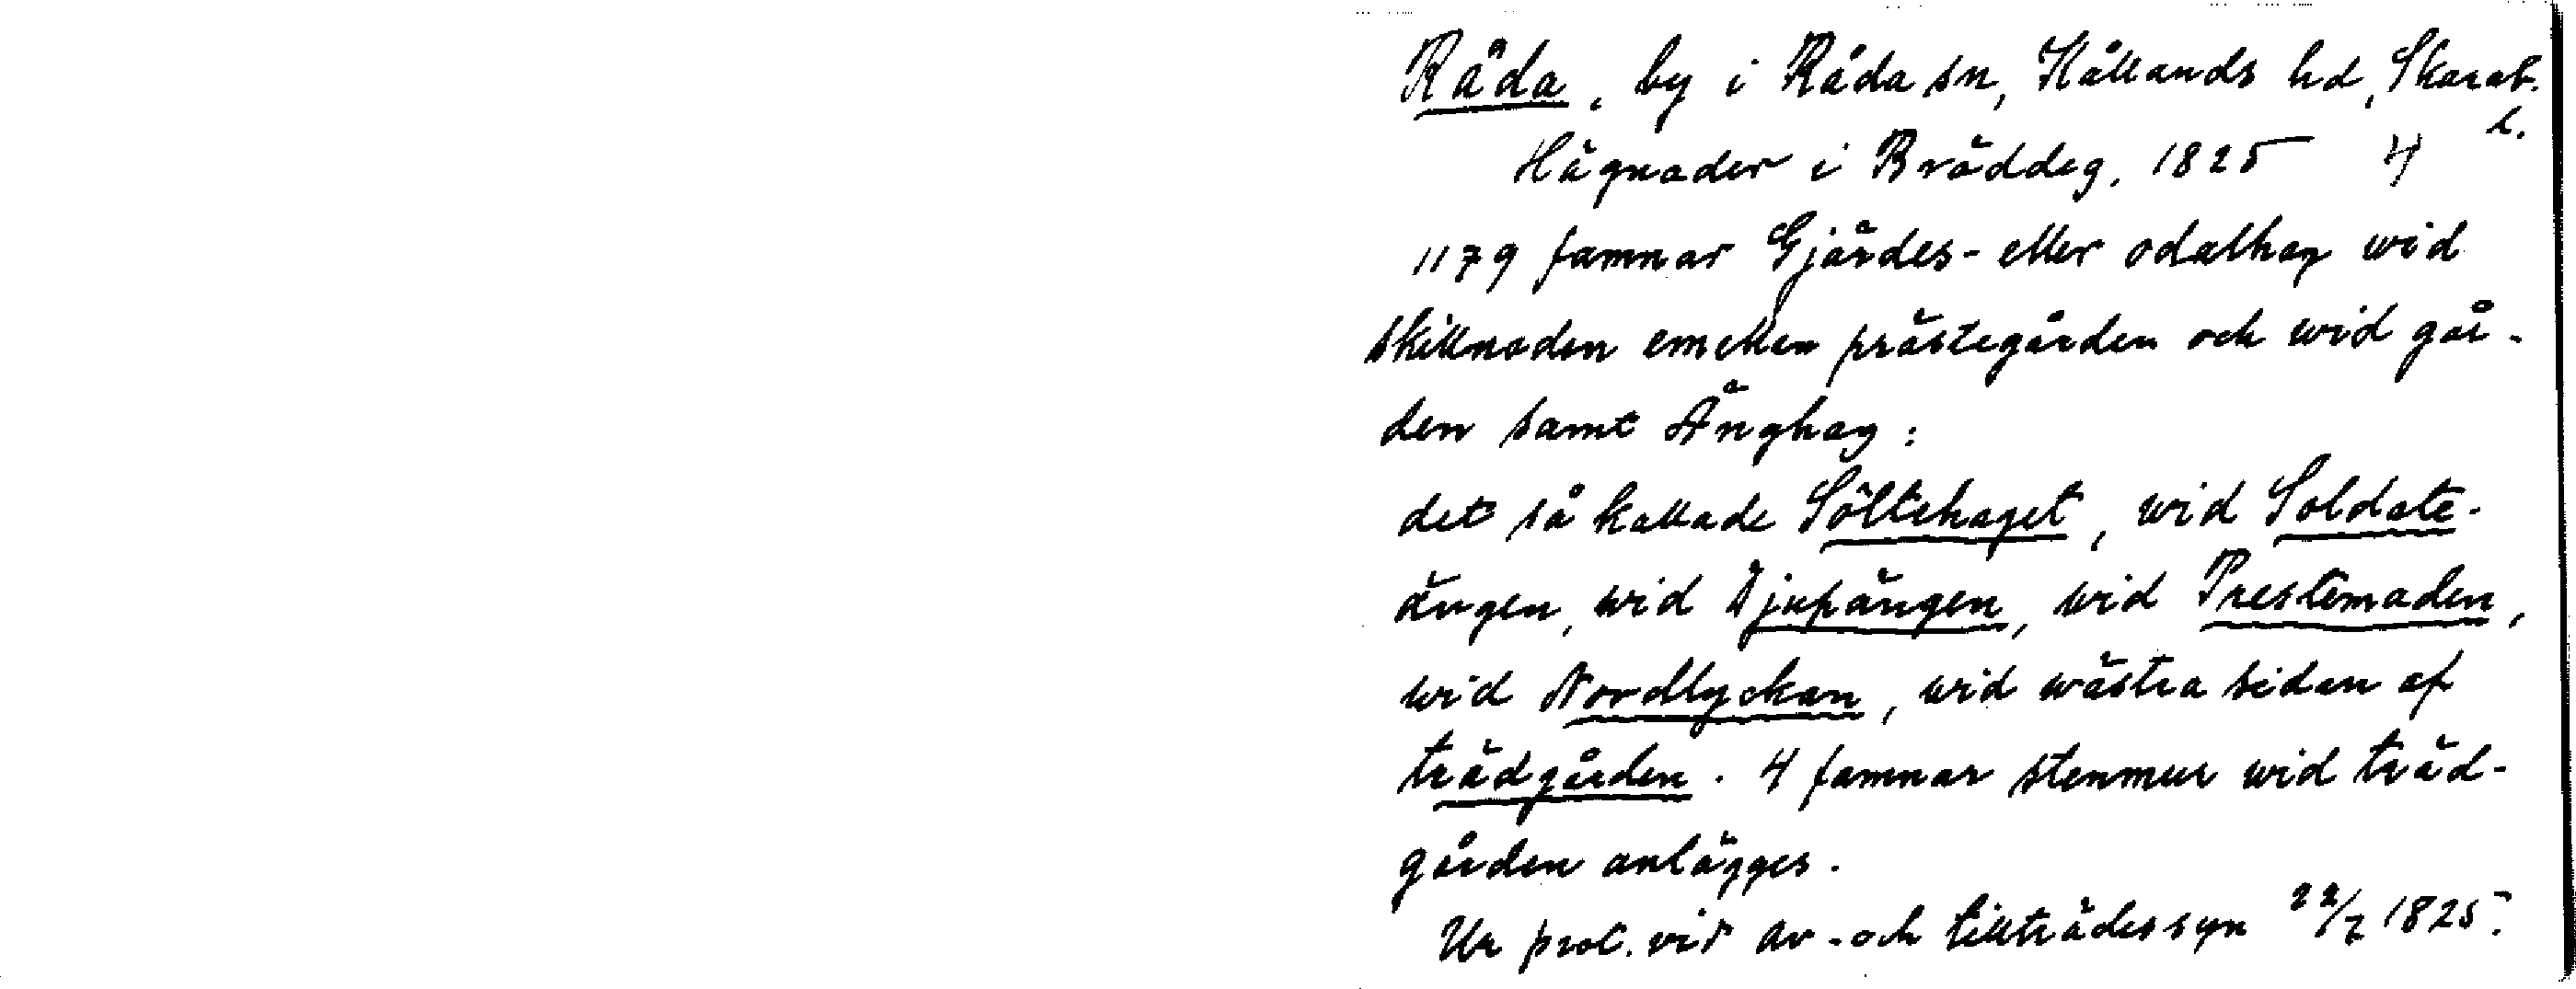 Råda, by i Råda sn, Kållands hd, Skarab. l.
Hägnader i Präddeg. 1825 4
1179 famnar Gjärdes- eller odalhag wid
skillnaden emellan prästegården och wid går-
den samt Änghag:
det så kallade Söltehaget, wid Soldate-
ängen, wid Djupängen, wid Prestemaden,
wid Nordlyckan, wid wästra sidan af
trädgården. 4 famnar stenmur wid träd-
gården anlägges.
Ur prot. vid av- och tillträdessyn 22/7 1825.